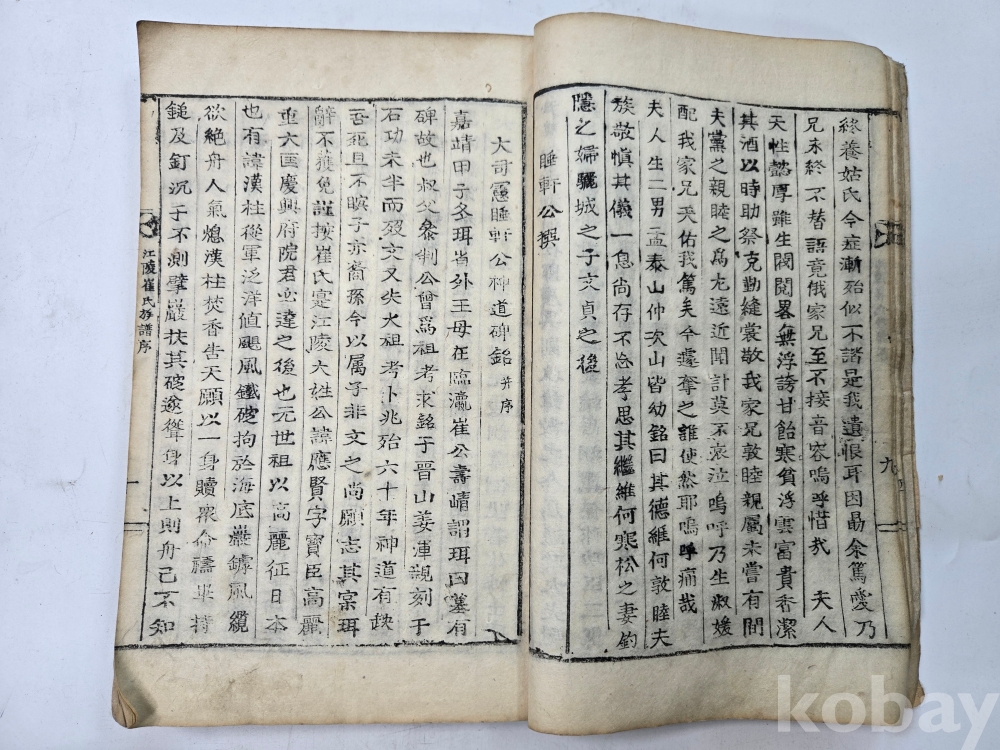 終養姑氏今症漸殆似不諧是我遺恨耳因勗余篤愛乃
兄未終不替語竟俄家兄至不接音容嗚乎惜哉 夫人
天性懿厚雖生閥閱畧無浮誇甘飴寒貧浮雲富貴香潔
其酒以時助祭克勤縫裳敬我家兄敦睦親屬未嘗有間
夫黨之親睦之爲尤遠近聞訃莫不哀泣嗚呼乃生淑媛
配我家兄天佑我篤矣今遽奪之誰使然耶嗚呼痛哉
夫人生二男一孟泰山仲次山皆幼銘曰其德維何敦睦夫
族敬愼其儀一息尙存不忘孝思其繼維何寒松之妻釣
隱之婦驪城之子文貞之後
睡軒公撰
九
大司憲睡軒公神道碑銘 幷序
嘉靖甲子冬珥省外王母在臨瀛崔公壽㠎謂珥曰墓有
碑故也叔父叅判公曾爲祖考求銘于晋山姜渾親刻于
石功未半而歿文又失火祖考卜兆殆六十年神道有缺
吾死且不瞑子亦裔孫今以属子非文之尙願志其宲珥
辭不獲免謹按崔氏寔江陵大姓公諱應賢字寶臣高麗
重大匡慶興府院君必達之後也元世祖以高麗征日本
也有諱漢柱從軍泛洋値颶風鐵碇拘於海底巖罅風纜
欲絶舟人氣熄漢柱焚香告天願以一身贖衆命禱畢持
鎚及釘沉于不測擘巖扶其碇遂聳身以上則舟已不知
江陵崔氏族譜序
一
kobay